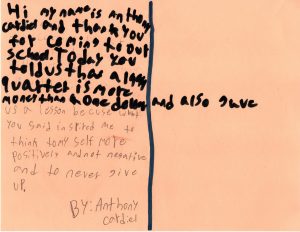 Hi my name is anthony
cardiel and thank you
for coming to out
school. Today you
toldus that a 1994
quatter is more
money than a one doller and also gave
us a lesson because what
you said inspired me to
think tomy self more
positively and not negative
and to never give
up.
BY: Anthony
cardiel